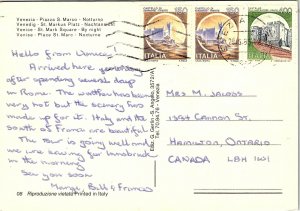 Venezia - Piazza S. Marco - Notturno
Venedig - St. Markus Platz - Nachtansicht
Venice - St. Mark Square - By night
Venise - Place St. Marc - Nocturne
Hello from Venice!
Arrived here yesterday
after spending several days
in Rome. The weather has been
very hot but the scenery has
made up for it. Italy and the
south of France are beautiful.
The tour is going well and
we are leaving for Innsbruck
in the morning.
See you soon
Marge, Bill & Frances
08 Riproduzione vietata Printed in Italy
Venezia
MRS M. JACOBS
HAMILTON, ONTARIO
CANADA L8H 1W1